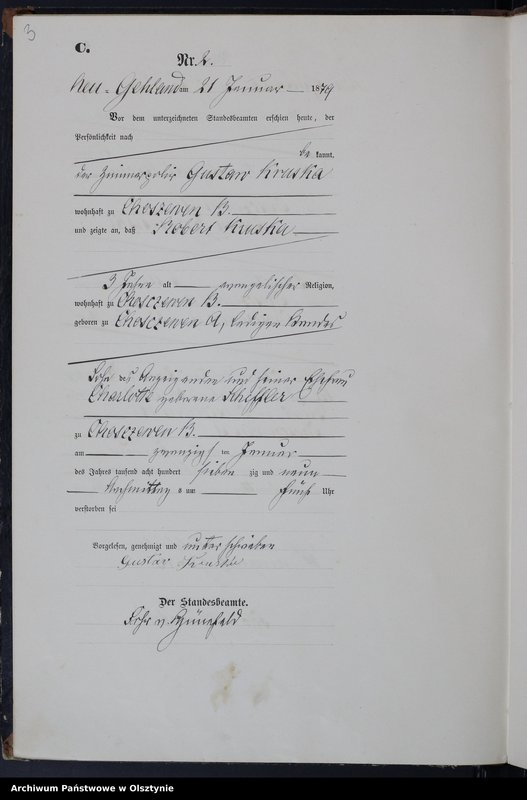 3
C.
Nr. 2.
Neu-Gehland am 21 Januar 1879
Vor dem unterzeichneten Standesbeamten erschien heute, der
Persönlichkeit nach
be kannt,
der Zimmerpolir Gustav Kruska
wohnhaft zu Choszewen B.
und zeigte an, daß Robert Kruska
3 Jahre alt evangelischer Religion,
wohnhaft zu Choszewen B.
geboren zu Choszewen A, ledigen Standes
Sohn des Anzeigenden und seiner Ehefrau
Charlotte geborene Scheffler
zu Choszewen B.
am zwanzigs ten Januar
des Jahres tausend acht hundert sieben zig und neun
Nachmittag s um fünf Uhr
verstorben sei
Vorgelesen, genehmigt und unterschrieben
Gustav Kruska
Der Standesbeamte.
Frhr v.
Archiwum Państwowe w Olsztynie